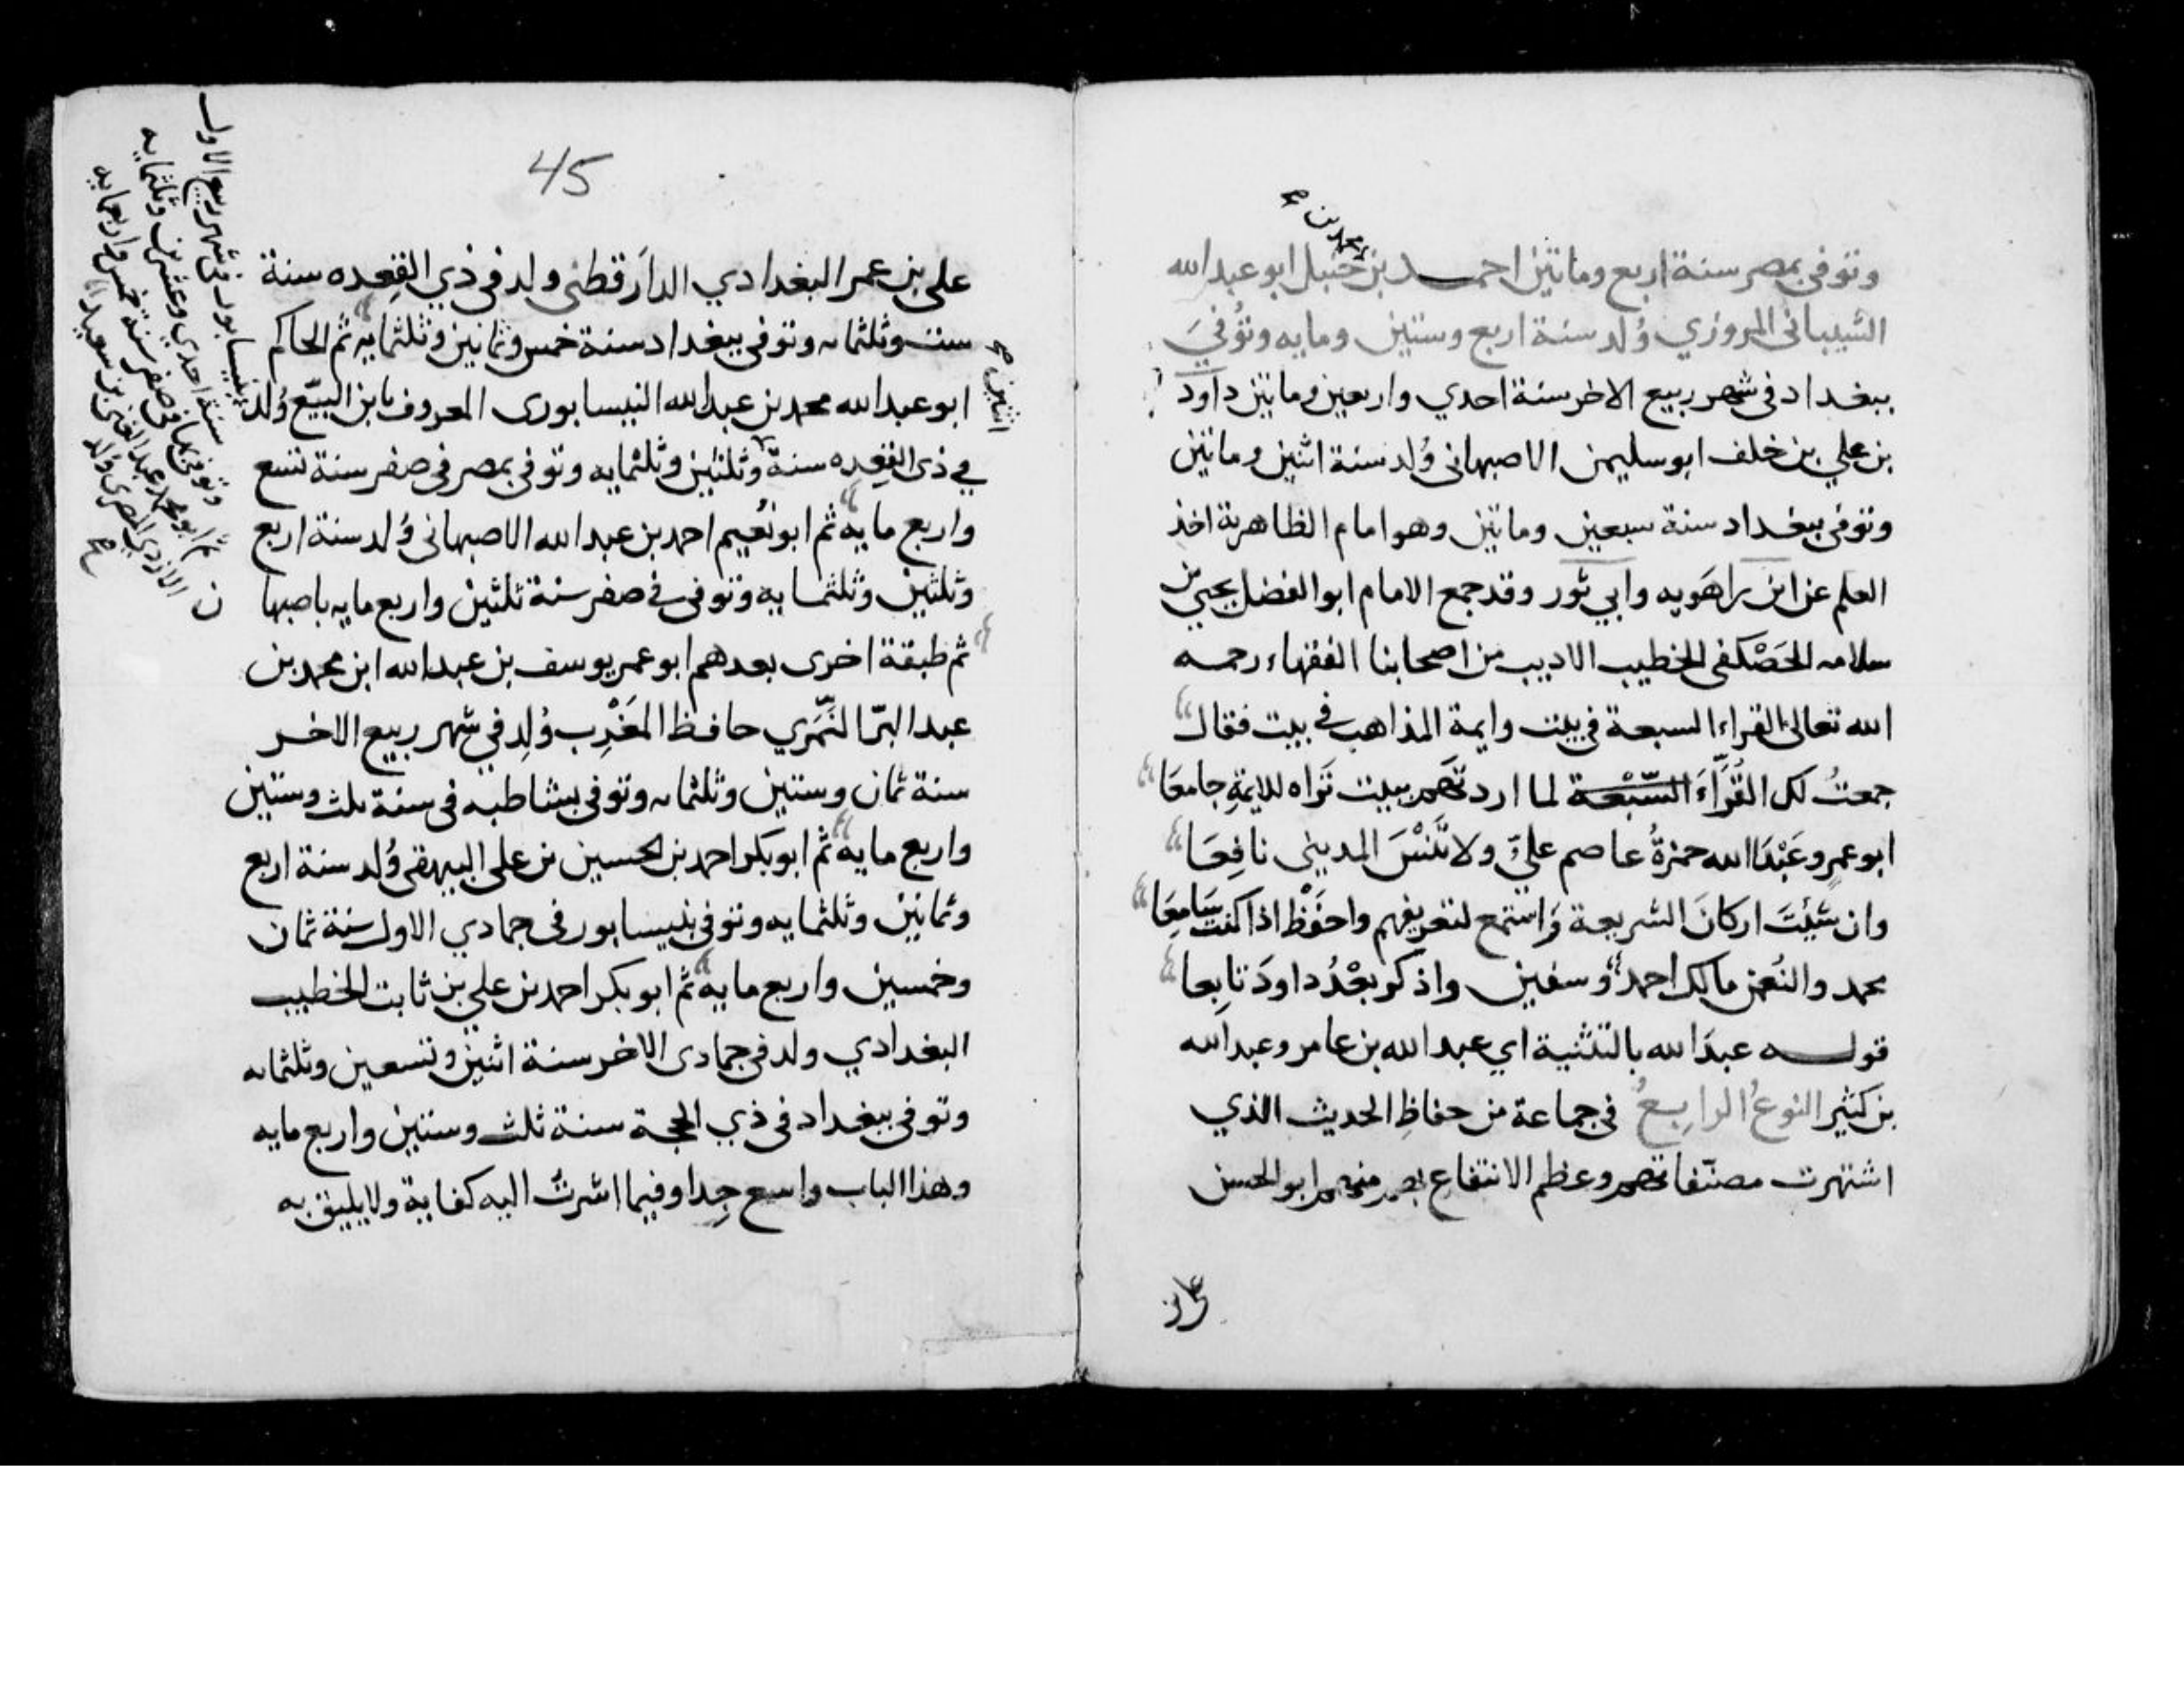 محمد بن صح
وتوفي بمصر سنة اربع وماتين احمد بن حنبل ابو عبد الله
الشيباني المروزي وُلد سنة اربع وستين ومايه وتُوُفيَ
ببغداد في شهر ربيع الاخر سنة احدي واربعين وماتين داود
بن علي بن خلف ابو سليمن الاصبهاني وُلد سنة اثنين وماتين
وتوفي ببغداد سنة سبعين وماتين وهو امام الظاهرية اخذ
العلم عن ابن راهَويه وابي ثور وقد جمع الامام ابو الفضل يحيي بن
سلامه الحَصْكفي الخطيب الاديب من اصحابنا الفقهاء رحمه
الله تعالى القراء السبعة في بيت وايمة المذاهب في بيت فقال
جمعتُ لك القُرّاءَ السّبْعة لما اردتهم ببيت تَراه للايمةِ جامعَا
ابو عمرو عَبْدَا الله حمزةُ عاصم عليّ ولا تَنْسَ المديني نافِعَا
وان شيْتَ اركانَ الشريعة وَاستمع لتعريفهم واحفَظْ اذا كنت سَامِعَا
محمد والنُعمن مالك احمد وسفين واذكر بعْدُ داودَ تابِعا
قوله عبدَا الله بالتثنية اي عبد الله بن عامر وعبد الله
بن كثير النوعُ الرابعُ في جماعة من حفاظِ الحديث الذي
اشتهرت مصنّفاتهم وعظم الانتفاع بهم منهم ابو الحسن
علي بن
45
علي بن عمر البغدادي الدارَقطني ولد في ذي القِعده سنة
ست وثلثمايه وتوفي ببغداد سنة خمس وثمانين وثلثمايه ثم الحاكم
ابو عبد الله محمد بن عبد الله النيسابوري المعروف بابن البيّع وُلد
في ذي القِعِده سنة وثلثين وثلثمايه وتوفي بمصر في صفر سنة تسع
واربع مايه ثم ابو نُعيم احمد بن عبد الله الاصبهاني وُلد سنة اربع
وثلثين وثلثمايه وتوفي في صفر سنة ثلثين واربع مايه باصبها
ن
ثم طبقة اخرى بعدهم ابو عمر يوسف بن عبد الله ابن محمد بن
عبد البرّ النَّمَري حافظ المَغْرِب وُلِد في شهر ربيع الاخر
سنة ثمان وستين وثلثمايه وتوفي بشاطبه في سنة ثلث وستين
واربع مايه ثم ابو بكر احمد بن الحسين بن علي البيهقي وُلد سنة اربع
وثمانين وثلثمايه وتوفي بنيسابور في جمادي الاولى سنة ثمان
وخمسين واربع مايه ثم ابو بكر احمد بن علي بن ثابت الخطيب
البغدادي ولد في جمادى الاخر سنة اثنين وتسعين وثلثمايه
وتوفي ببغداد في ذي الحجة سنة ثلث وستين واربع مايه
وهذا الباب واسع جِدا وفيما اشرتُ اليه كفاية ولا يليق به
اثنين صح
بنيسابور في شهر ربيع الاول
سنة احدي وعشرين وثلثمايه
وتوفي بها في صفر سنة خمس واربعمايه
ثم ابو محمد عبد الغني بن سعيد
الازدي المصري وُلد
صح